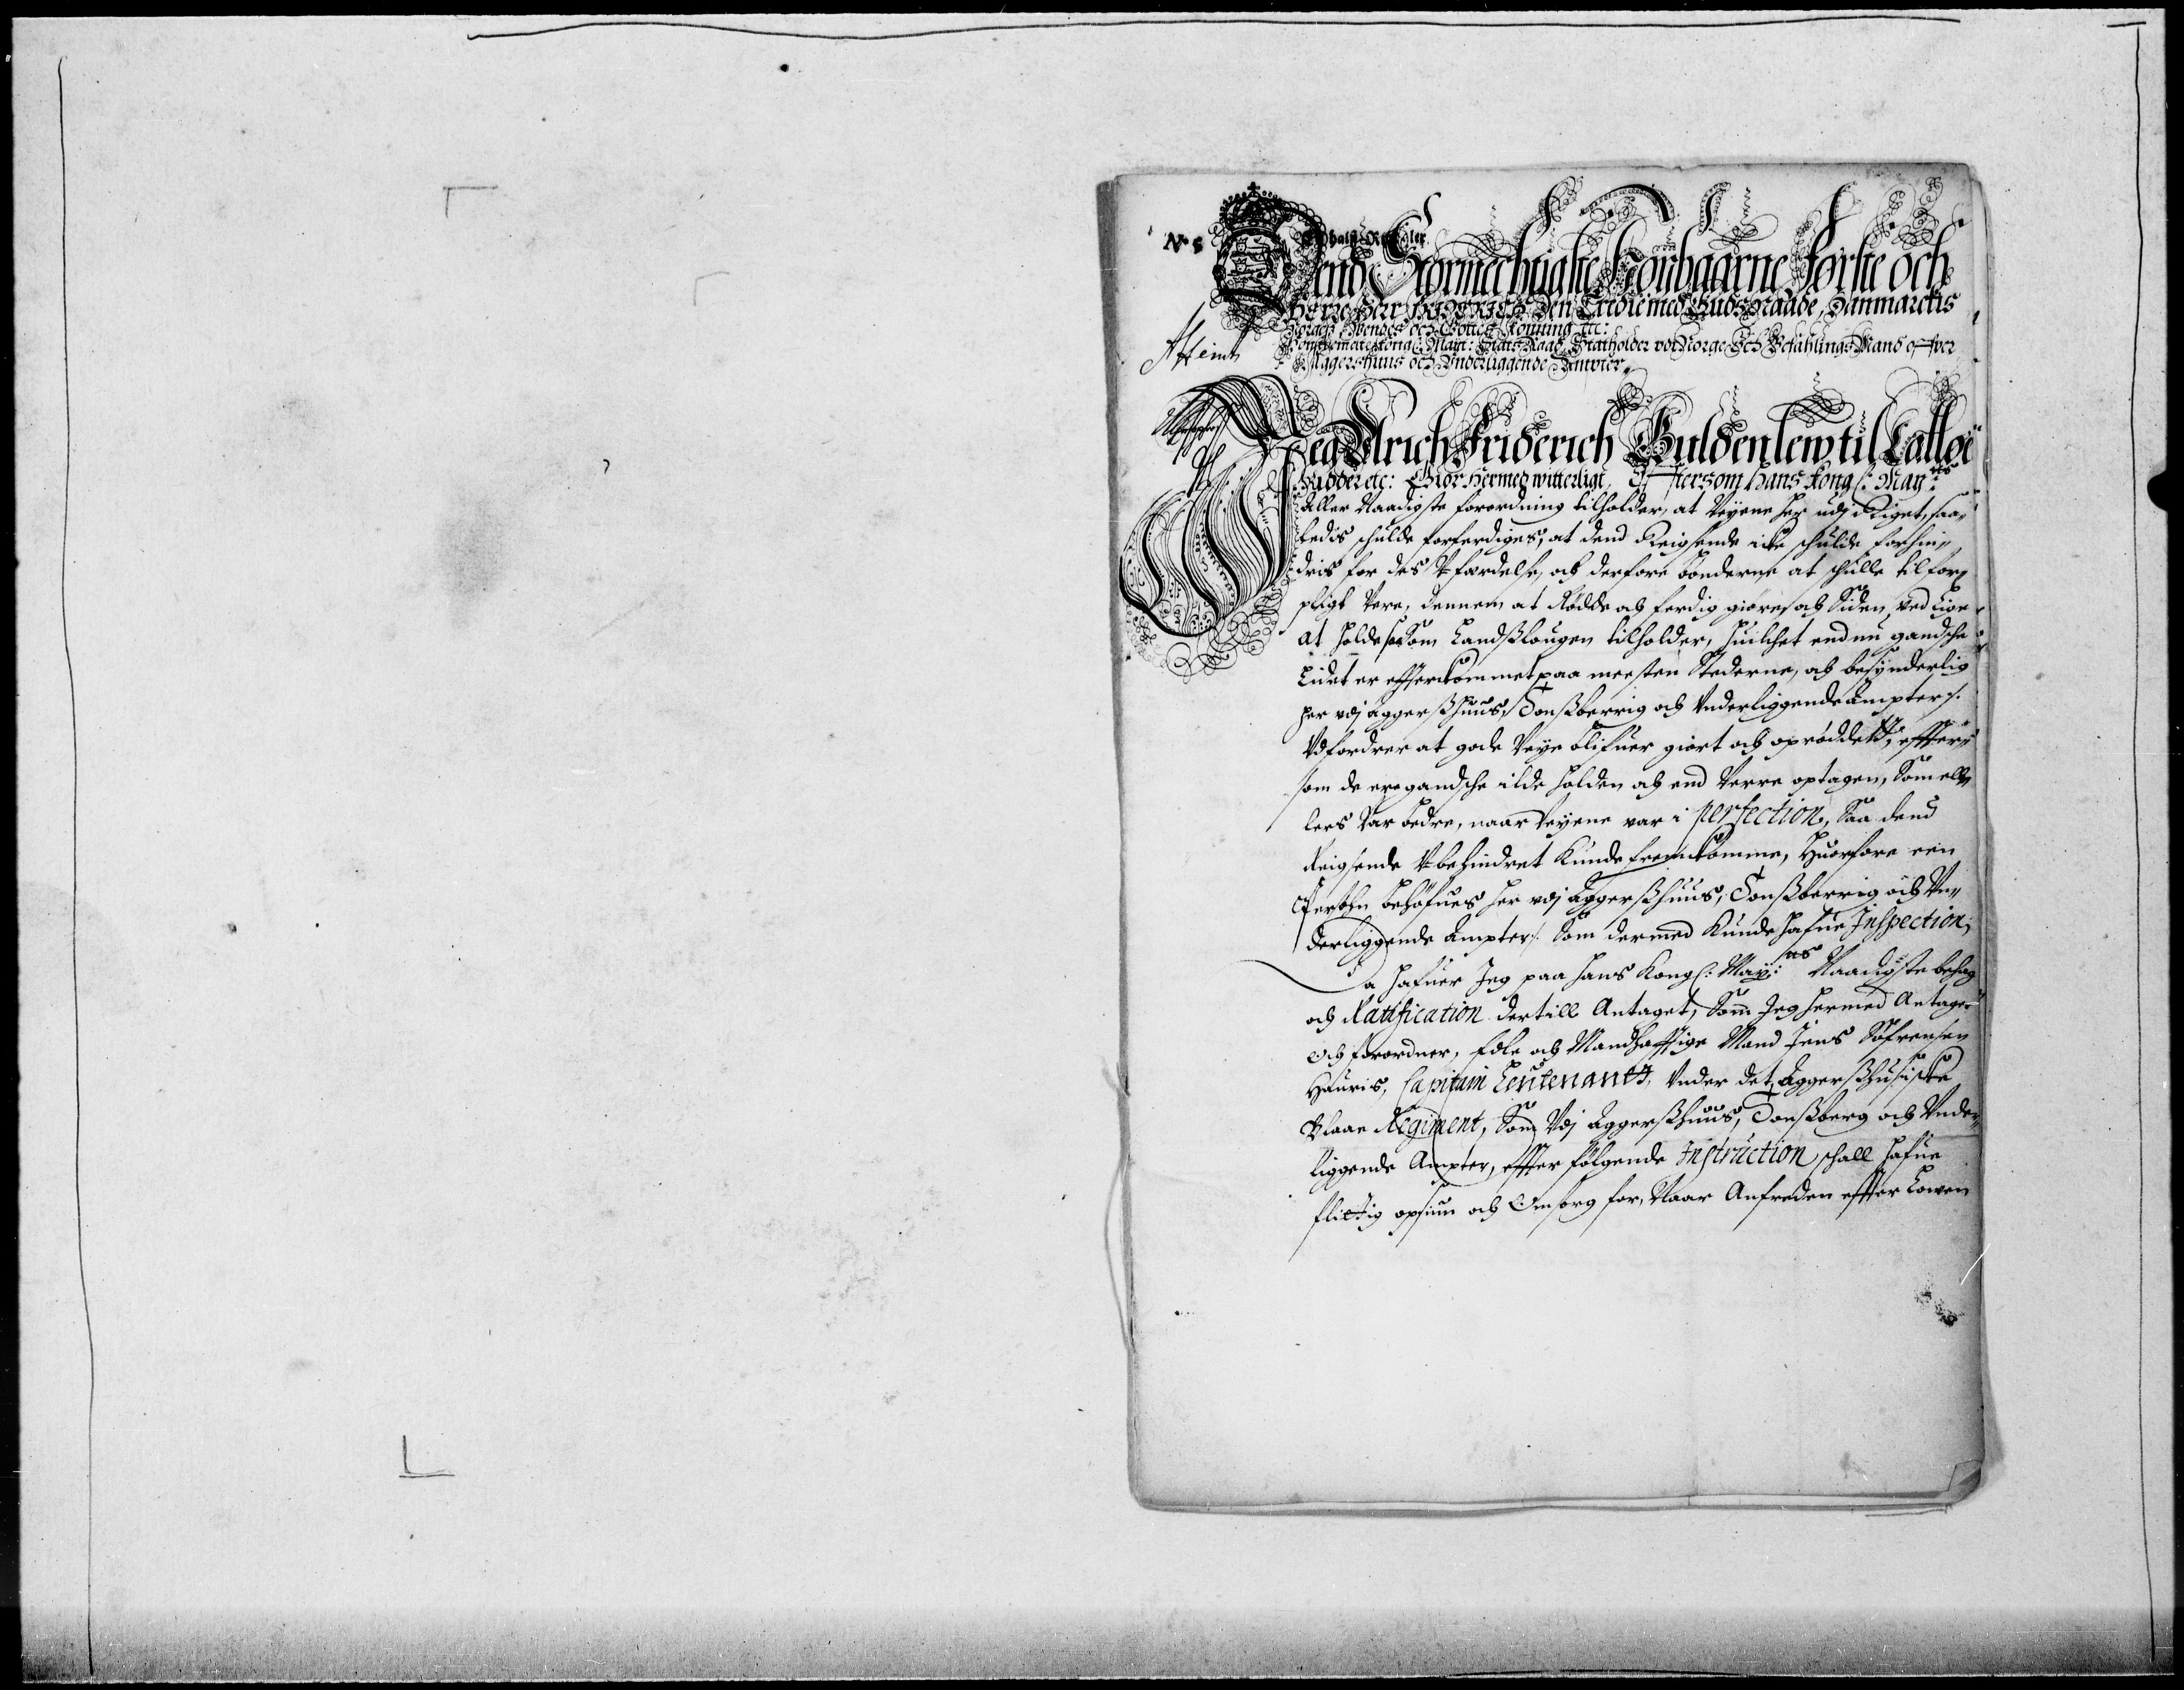 No 8
Dend Stormechtigste Höybaarne Första och
Herre, Herr FRIDERICH den Tredie med Guds Naade, Danmarckis
Norges Wendes och Gottes Konning etc:
Kongl: Mayt: Stats Raad, Statholder vdi Norge Och Befahlings Mand offuer
Aggershuus och Vnderliggende Ambter,
Jeg Ulrich Friderich Guldenlew til Calløe
Ridder etc: Giør Hermed witterligt, Efftersom Hans Kongl: May:ts
Aller Naadigste forordning tilholder, at Veyene her udj Riget, saa-
ledis schulde forferdiges, at dend Reigsende icke schulde forhin-
dris for des V-ferdelse, och derfore bønderne at schulle til for-
pligt were, dennem at Rødde och ferdig giøre, och Siden ved lige
at holde, som Landßlougen tilholder, huilchet end nu gandsche
Lidet er efterkommet paa meesten Stederne, och besynderlig
her vdj Aggerßhuus, Tonßberrig och Vnderliggende Ampter:/.
Vdfordrer at gode Veye blifuer giort och oprøddet, effter-
som de ere gandsche ilde holden och end Verre optagen, Som ell-
lers Var bedre, naar Veyene var i perfection, Saa dend
Reigsende V-behindret Kunde fremkomme, Huorfore een
Persohn behøfues her vdj Aggerßhuus, Tonßberrig och Vn-
derliggende Ampter:/. Som dermed Kunde hafue Inspection,
Da hafuer Jeg paa Hans Kongl: May:ts Naadigste behag
och Ratification dertill Antaget, Som Jeg hermed Antager
Och forordner, Edle och Mandhafftige Mand Jens Söfrensen
Hauris, Capitain Leutenant, Vnder det Aggerßhusiske
Blaae Regiment, Som Vdj Aggerßhuus, Tonßberg och Vnder-
liggende Ampter, effter følgende Instruction schall hafue
flittig opsiun och Omsorg for, Naar Anfreden effter Lowen